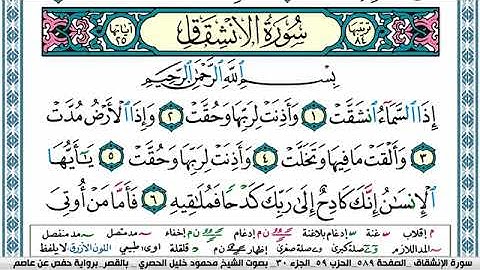 ترتيبها ٨٤ سُورَةُ الِانْشِقَاقِ آياتها ٢٥
بِسْمِ اللَّهِ الرَّحْمَٰنِ الرَّحِيمِ
إِذَا السَّمَاءُ انشَقَّتْ ١ وَأَذِنَتْ لِرَبِّهَا وَحُقَّتْ ٢ وَإِذَا الْأَرْضُ مُدَّتْ
٣ وَأَلْقَتْ مَا فِيهَا وَتَخَلَّتْ ٤ وَأَذِنَتْ لِرَبِّهَا وَحُقَّتْ ٥ يَٰأَيُّهَا
الْإِنسَٰنُ إِنَّكَ كَادِحٌ إِلَىٰ رَبِّكَ كَدْحًا فَمُلَٰقِيهِ ٦ فَأَمَّا مَنْ أُوتِيَ
م إقلاب س غنة إدغام بلاغنة ن م إدغام ن م إخفاء مد متصل مد منفصل
المد اللازم صلة كبرى وے صلة صغرى إظهار ن م قلقلة اوى طبيعي اللون الأزرق لا يلفظ
سورة الإنشقاق_ الصفحة ٥٨٩_ الحزب ٥٩_ الجزء ٣٠_ بصوت الشيخ محمود خليل الحصري _ بالقصر_ برواية حفص عن عاصم